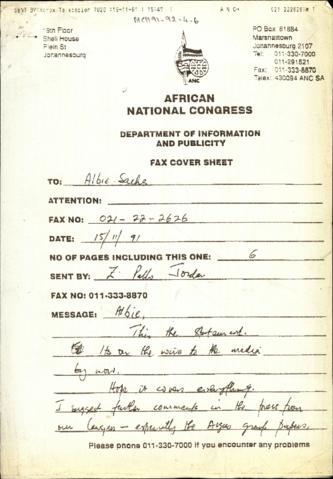 MCH91-92-4-6
Shell House
Plein St
Johannesburg
PO Box 61884
Marshalltown
Johannesburg 2107
Tel: 011-330-7000
011-291521
Fax: 011-333-8870
Telex: 430094 ANC SA
ANC
AFRICAN
NATIONAL CONGRESS
DEPARTMENT OF INFORMATION
AND PUBLICITY
FAX COVER SHEET
TO: Albie Sachs
ATTENTION:
FAX NO: 021-22-2626
DATE: 15/11/91
NO OF PAGES INCLUDING THIS ONE: 6
SENT BY: Z. Pallo Jordan
FAX NO: 011-333-8870
MESSAGE: Albie,
This the statement.
Its on the wire to the media
by now.
Hope it covers everything.
I suggest further comments in the press from
our lawyers — especially the Argus group papers.
Please phone 011-330-7000 if you encounter any problems